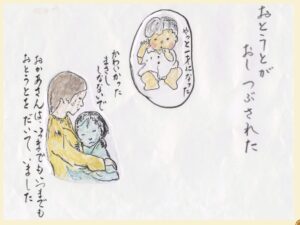 おとうとが
おしつぶされた
やっと一才になった
かわいかった
まさし
しなないで
おかあさんは、いつまでもいつまでも
おとうとをだいていました